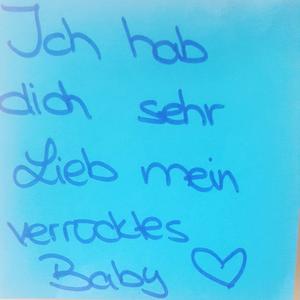 Ich hab
dich sehr
Lieb mein
verrocktes
Baby ♡